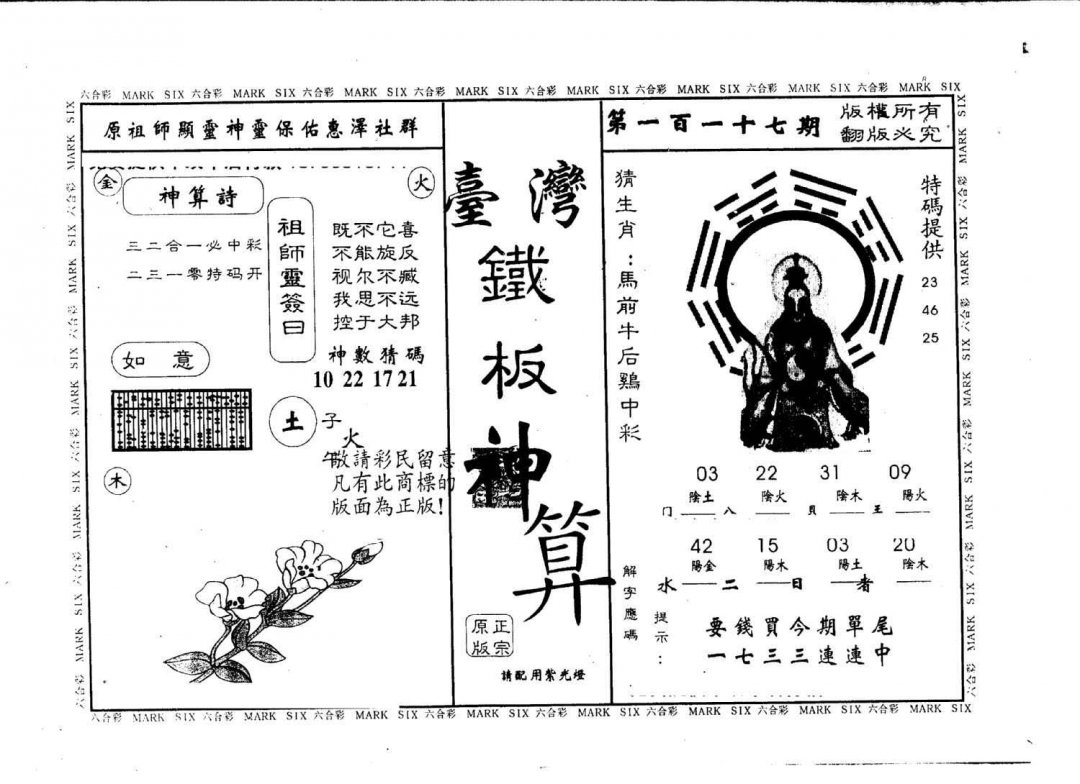 六合彩 MARK SIX 六合彩 MARK SIX 六合彩 MARK SIX 六合彩 MARK SIX 六合彩 MARK SIX 六合彩 MARK SIX 六合彩 MARK SIX 六合彩 MARK SIX
原祖師顯靈神靈保佑惠澤社群
金
火
神算詩
三二合一必中彩
二三一零特码开
祖師靈簽曰
既不它喜
不能旋反
视尔不臧
我思不远
控于大邦
神數猜碼
10 22 17 21
如意
土
子
火
午
木
敬請彩民留意
凡有此商標的
版面為正版!
臺灣
鐵
板
神
算
正宗
原版
請配用紫光燈
第一百一十七期
版權所有
翻版必究
猜生肖:馬前牛后鷄中彩
特碼提供
23
46
25
03 22 31 09
陰土 陰火 陰木 陽火
门 八 貝 王
42 15 03 20
陽金 陽木 陽土 陰木
水 二 日 者
解字應碼
提示:
要錢買今期單尾
一七三三連連中
六合彩 MARK SIX 六合彩 MARK SIX 六合彩 MARK SIX 六合彩 MARK SIX 六合彩 MARK SIX 六合彩 MARK SIX 六合彩 MARK SIX 六合彩 MARK SIX